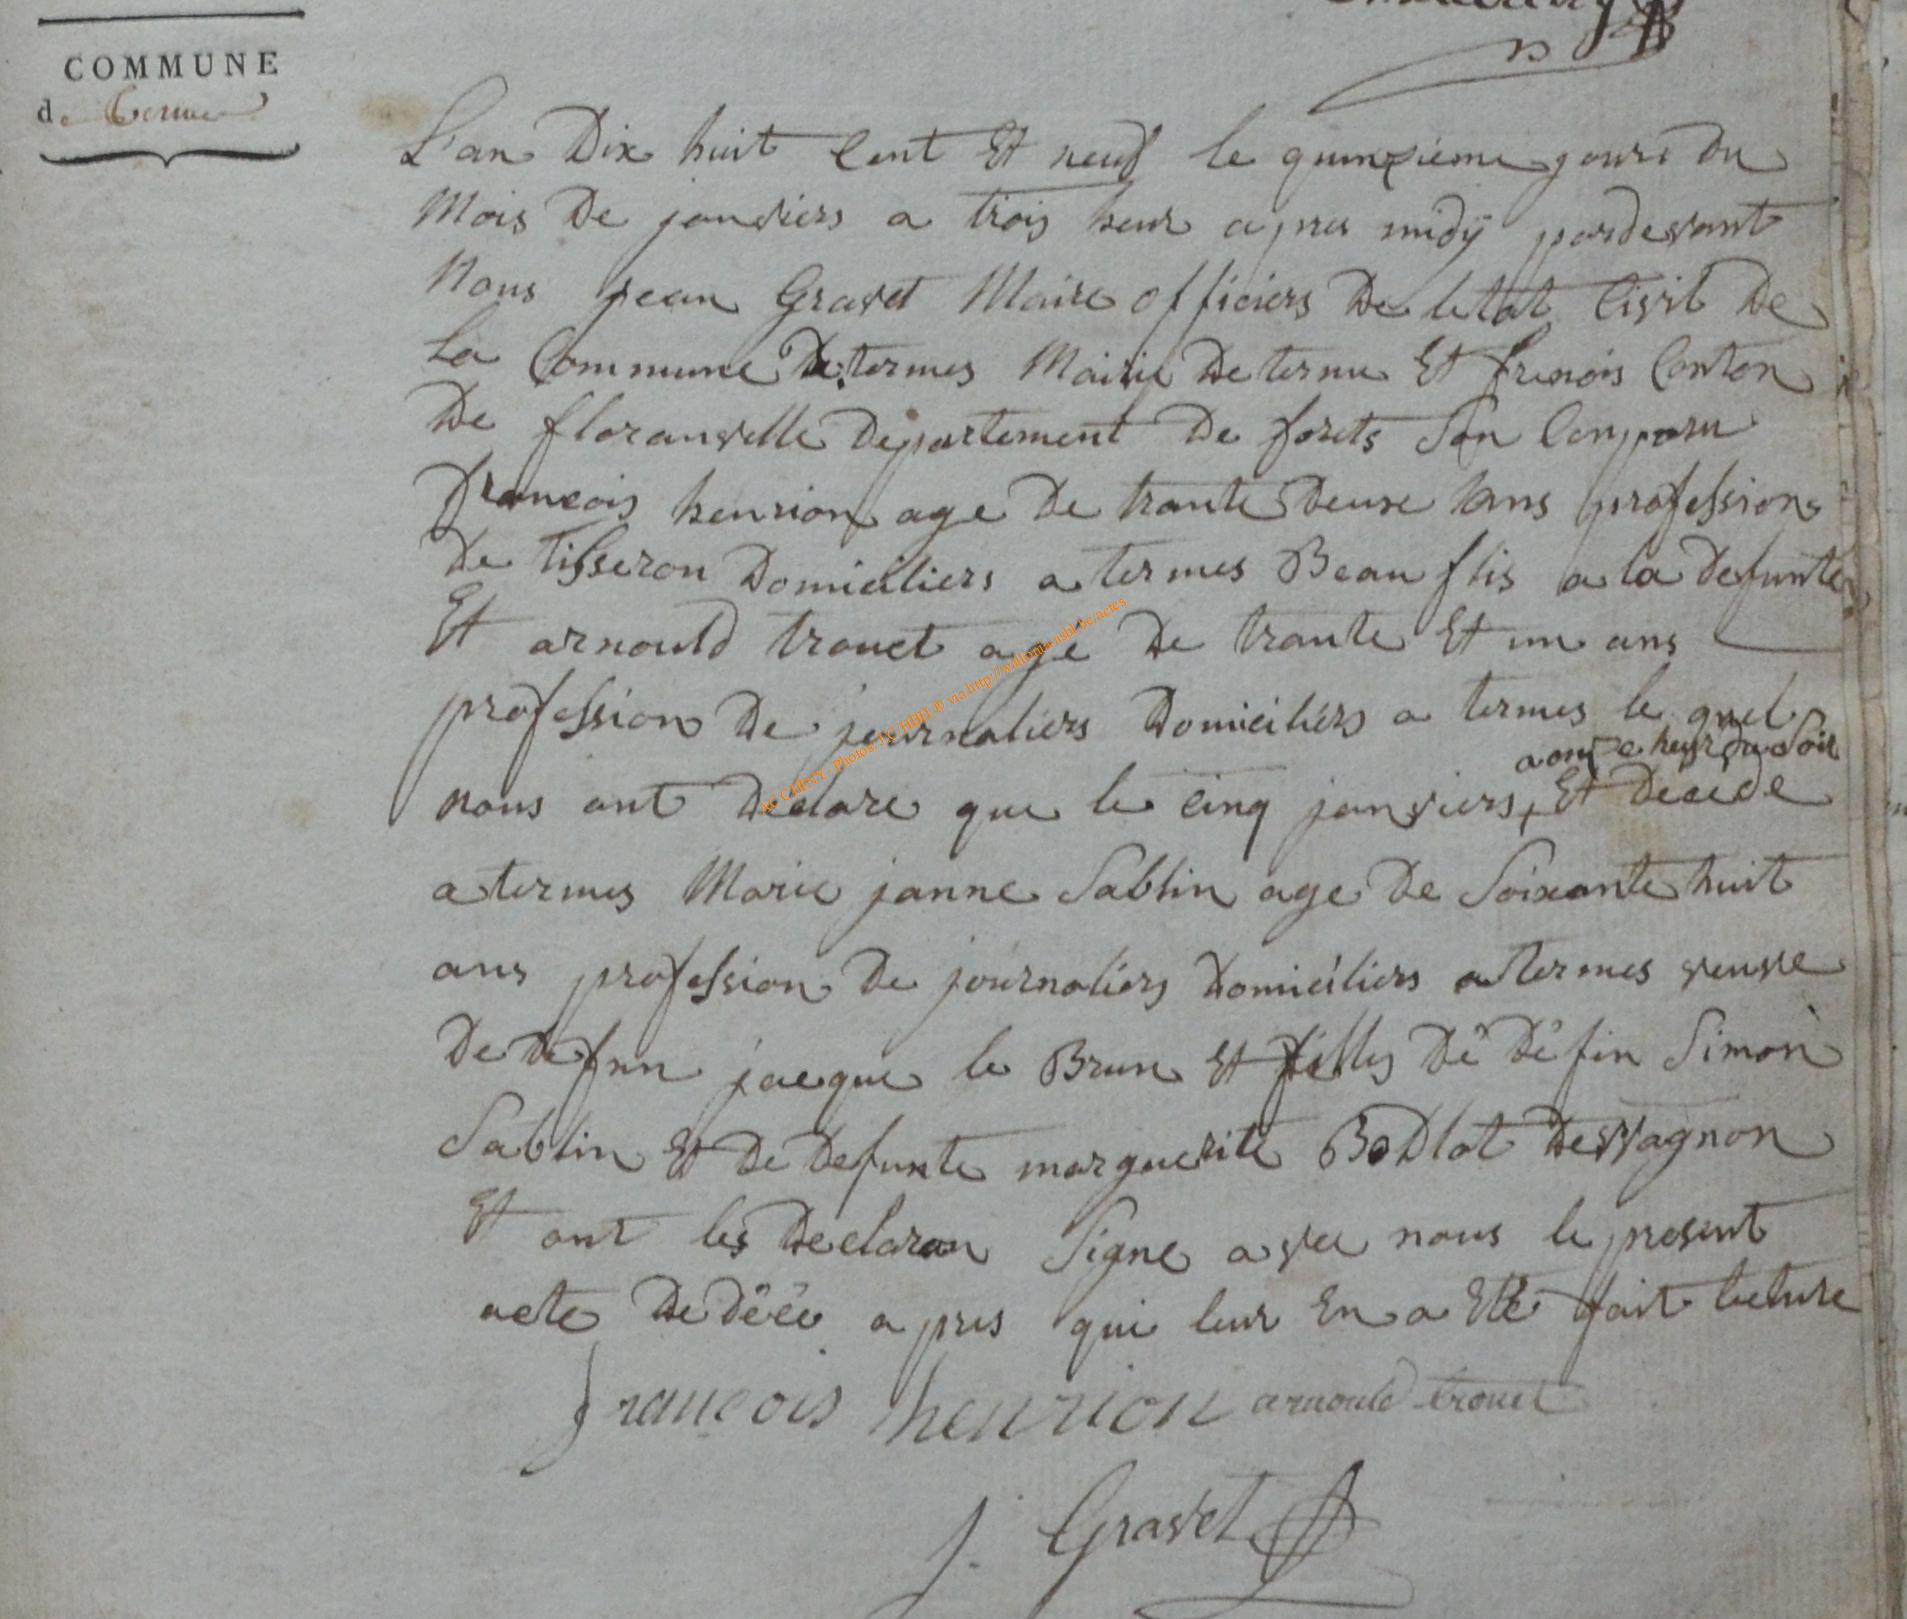 COMMUNE
de termes
L'an Dix huit Cent Et neuf le quinzieme jours du
Mois De janviers a trois heur apres midÿ pardevant
Nous jean Gravet Maire officiers De letat Civil De
La Commune De termes Mairie De terme Et frenois Conton
De floranville Departement De forets Son Comparu
francois henrion age De trante Deuxe Ans profession
De Tisseron Domiciliers a termes Beau flis a la Defunte
Et arnould trouet age De trante Et un ans
profession De journaliers Domiciliérs a termes le quel
a onze heur du Soir
nous ont Declare que le cinq janviers + Et Décede
a termes Marie janne Sablin age De Soixante huit
ans profession De journaliérs Domiciliers a termes veuve
De Defun jacque le Brun Et filles De Defin Simon
Sablin Et De Defunte marguerite Bodlot Devvagnon
Et ont les Declaran Signe avec nous le present
acte De Décé apres qui leur En a Eté fait lecture
francois henrion arnould trouet
j. Gravet
AC CHINY - Photos: AC HBH © via http://wallonia-asbl.be/actes